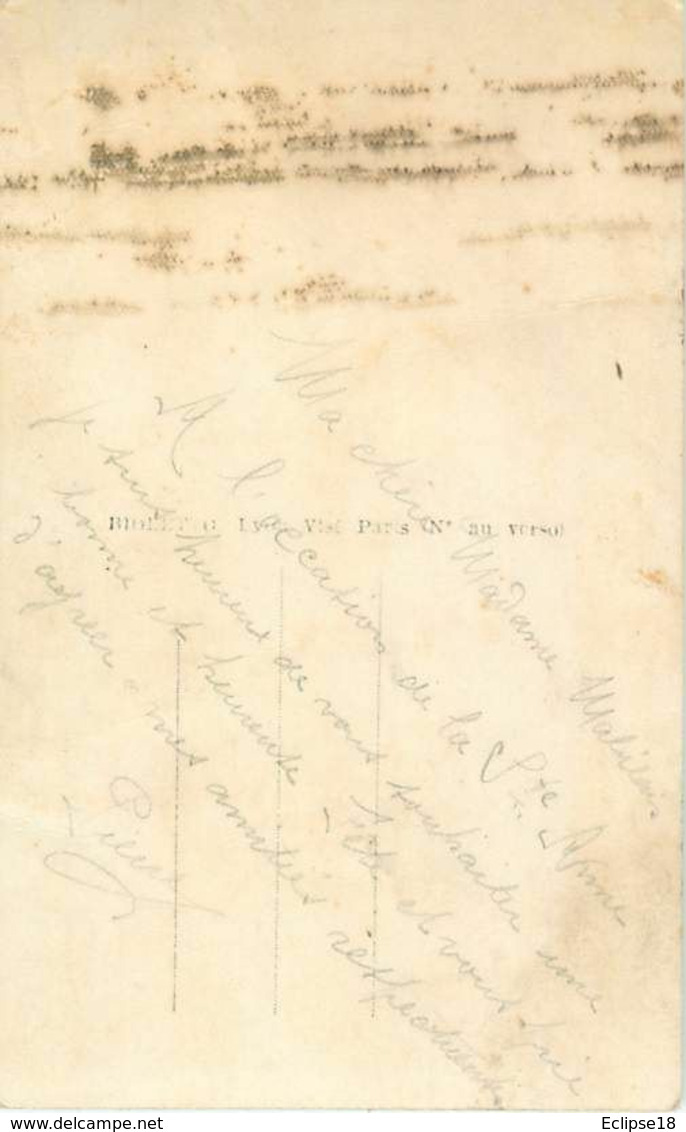 Ma chère Madame
A l'occation de la Ste Anne
je suis heureux de vous souhaiter une
bonne et heureuse fête et vous prie
d'agréer mes amitiés respectueuses
Pierre
Visé Paris (N° au verso)
Eclipse18
delcampe.net